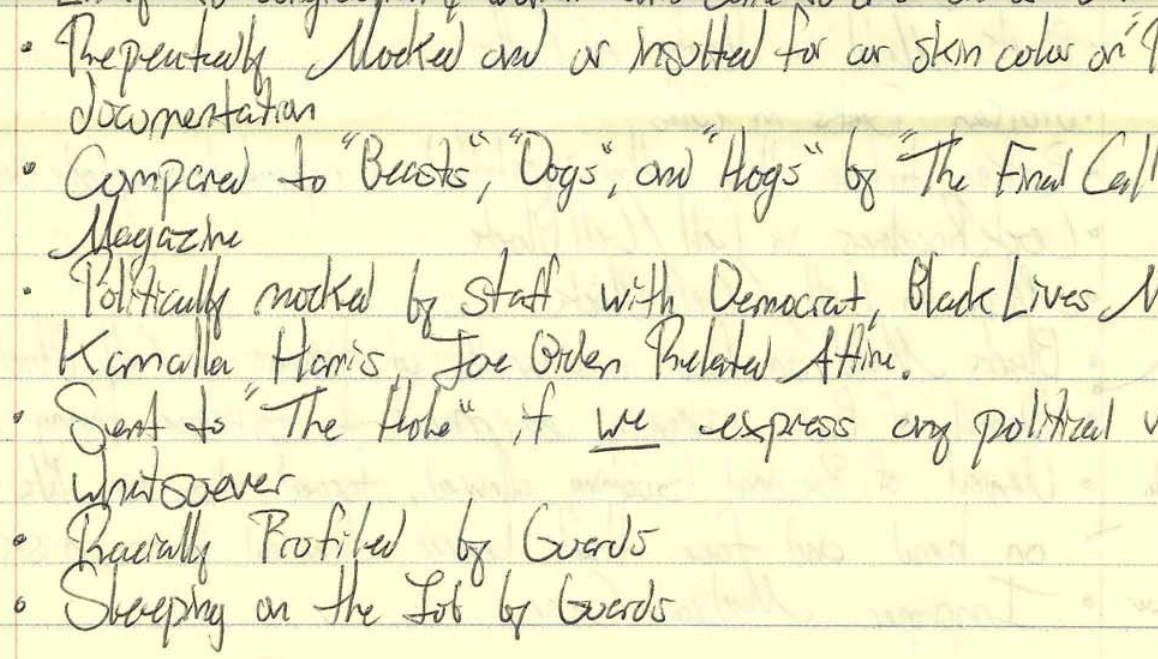 • Repeatedly Mocked and or insulted for our skin color on
documentation
• Compared to "Beasts", "Dogs", and "Hogs" by "The Final Call"
Magazine
• Politically mocked by staff with Democrat, Black Lives M
Kamalla Harris Joe Biden Related Attire.
• Sent to "The Hole" if we express any political v
whatsoever
• Racially Profiled by Guards
• Sleeping on the Job by Guards